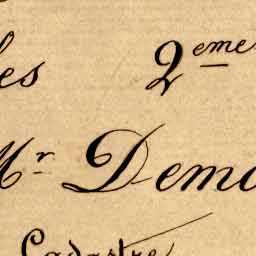 les 2eme
Mr Demo
Cadastre